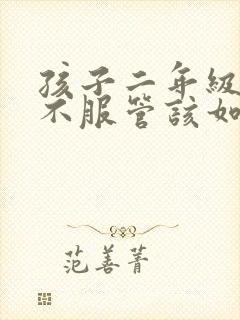 孩子二年级
不服管该如
范善菁